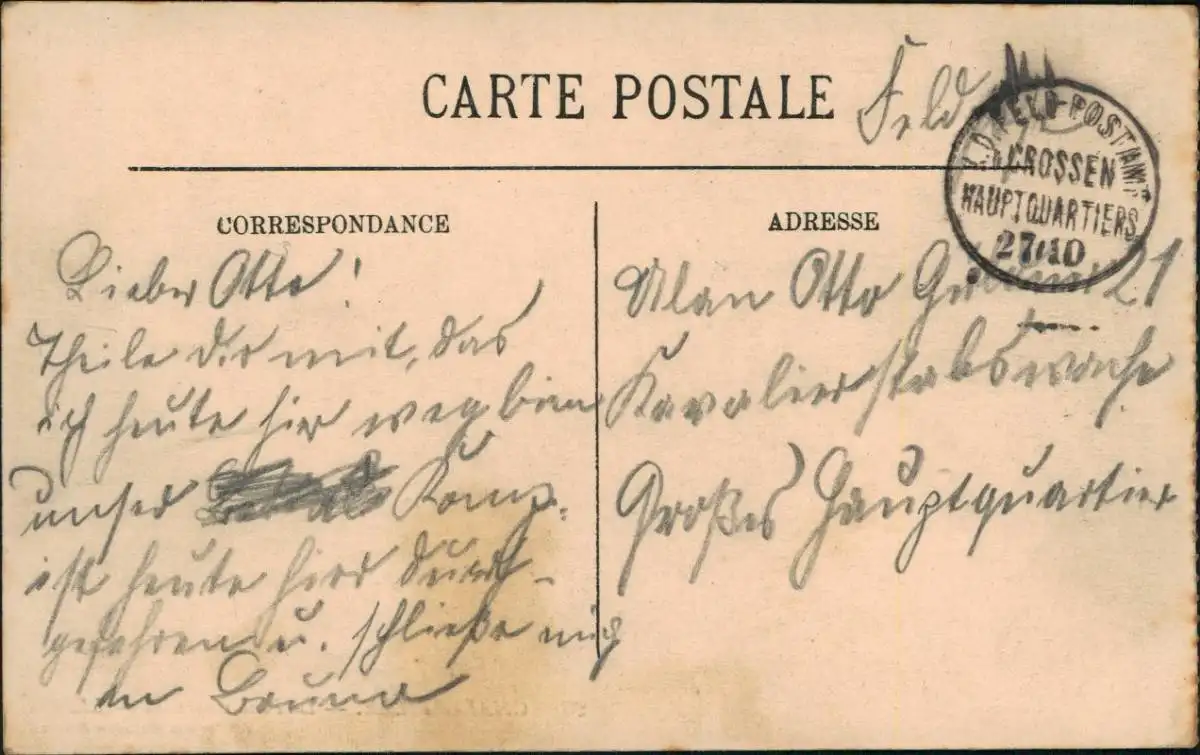 CARTE POSTALE
Feld
K.D. FELD-POSTAMT
GROSSEN
HAUPTQUARTIERS
27/10
CORRESPONDANCE
Lieber Otto!
Theile dir mit, das
ich heute hir weg bin
unser Komp.
ist heute hier durch-
gefahren u. schließe mich
an Bruno
ADRESSE
Ulan Otto 21
Kavalier stabswache
Großes Hauptquartier